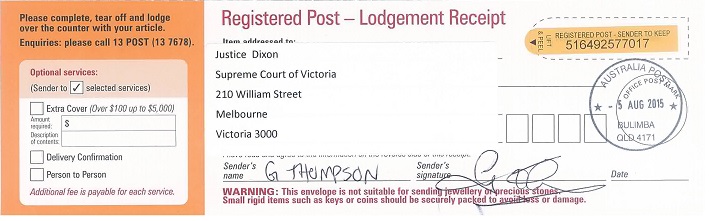 Please complete, tear off and lodge
over the counter with your article.
Enquiries: please call 13 POST (13 7678).
Optional services:
(Sender to ✓ selected services)
Extra Cover (Over $100 up to $5,000)
Amount
required:
$
Description
of contents:
Delivery Confirmation
Person to Person
Additional fee is payable for each service.
Registered Post – Lodgement Receipt
Item addressed to:
Justice Dixon
Supreme Court of Victoria
210 William Street
Melbourne
Victoria 3000
LIFT
& PEEL
REGISTERED POST - SENDER TO KEEP
516492577017
AUSTRALIA POST
OFFICE POSTMARK
- 5 AUG 2015
BULIMBA
QLD 4171
Sender's
name
G THOMPSON
Sender's
signature
Date
WARNING: This envelope is not suitable for sending jewellery or precious stones.
Small rigid items such as keys or coins should be securely packed to avoid loss or damage.